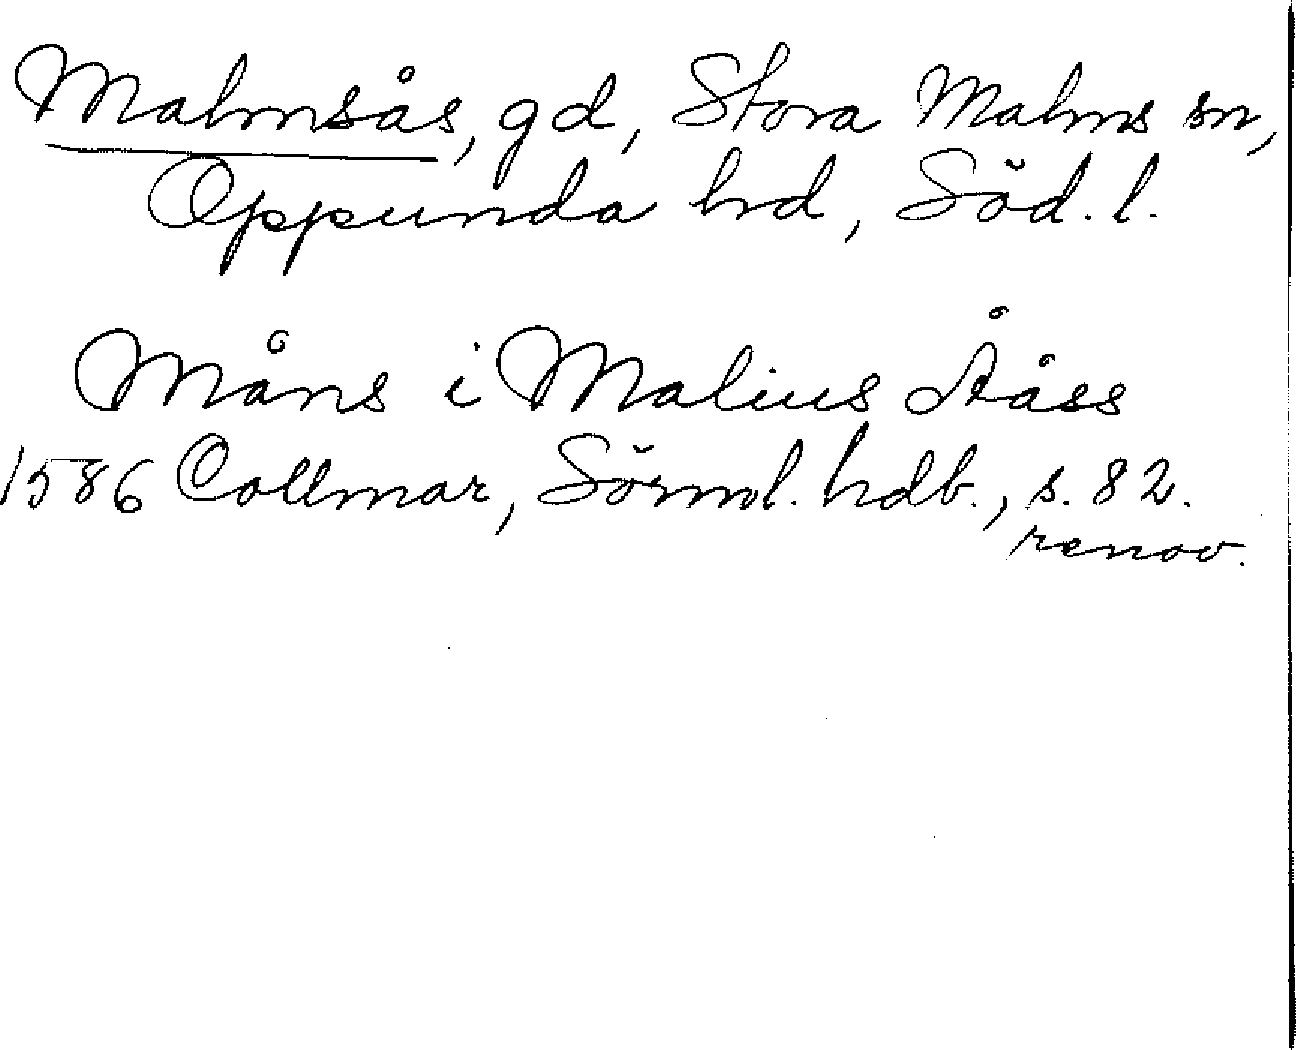 Malmsås, gd, Stora Malms sn,
Oppunda hd, Söd. l.
Måns i Malius Ååss
1586 Collmar, Sörml. hdb., s. 82.
renov.